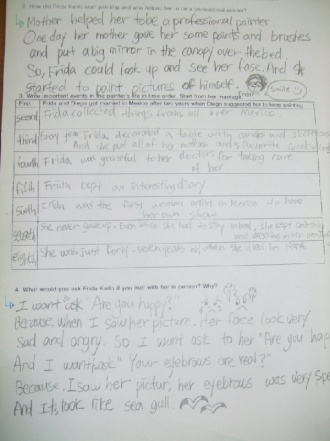 2. How did Frida Kahlo start painting and who helped her to be a professional painter?
Mother helped her to be a professional painter.
One day her mother gave her some paints and brushes
and put a big mirror in the canopy over the bed.
So, Frida could look up and see her fase. And
started to paint pictures of himself. Smile
3. Write important events in the painter's life in time order. Start from her marriage
First Frida and Diego got married in Mexico after two years when Diego suggested her to keep painting
second Frida collected things from all over Mexico.
third Every year Frida decorated a table with candles and
And she put all of her mother and s favorite
fourth Frida was grateful to her doctors for taking care
of her
fifth Frida kept an interesting diary
sixth Frida was the first woman artist in Mexico to have
her own show
seventh She never gave up. Even when she had to stay in bed, she kept painting
and
eighth She was just forty-seven years old when she died in 1954
4. What would you ask Frida Kahlo if you met with her in person? Why?
I want ask "Are you happy?"
Because, when I saw her picture. Her face look very
Sad and angry. So I want ask to her "Are you happ
And I want ask "Your eyebrows are real?"
Because. I saw her pictur, her eyebrows was very spe
And It, look like sea gull.